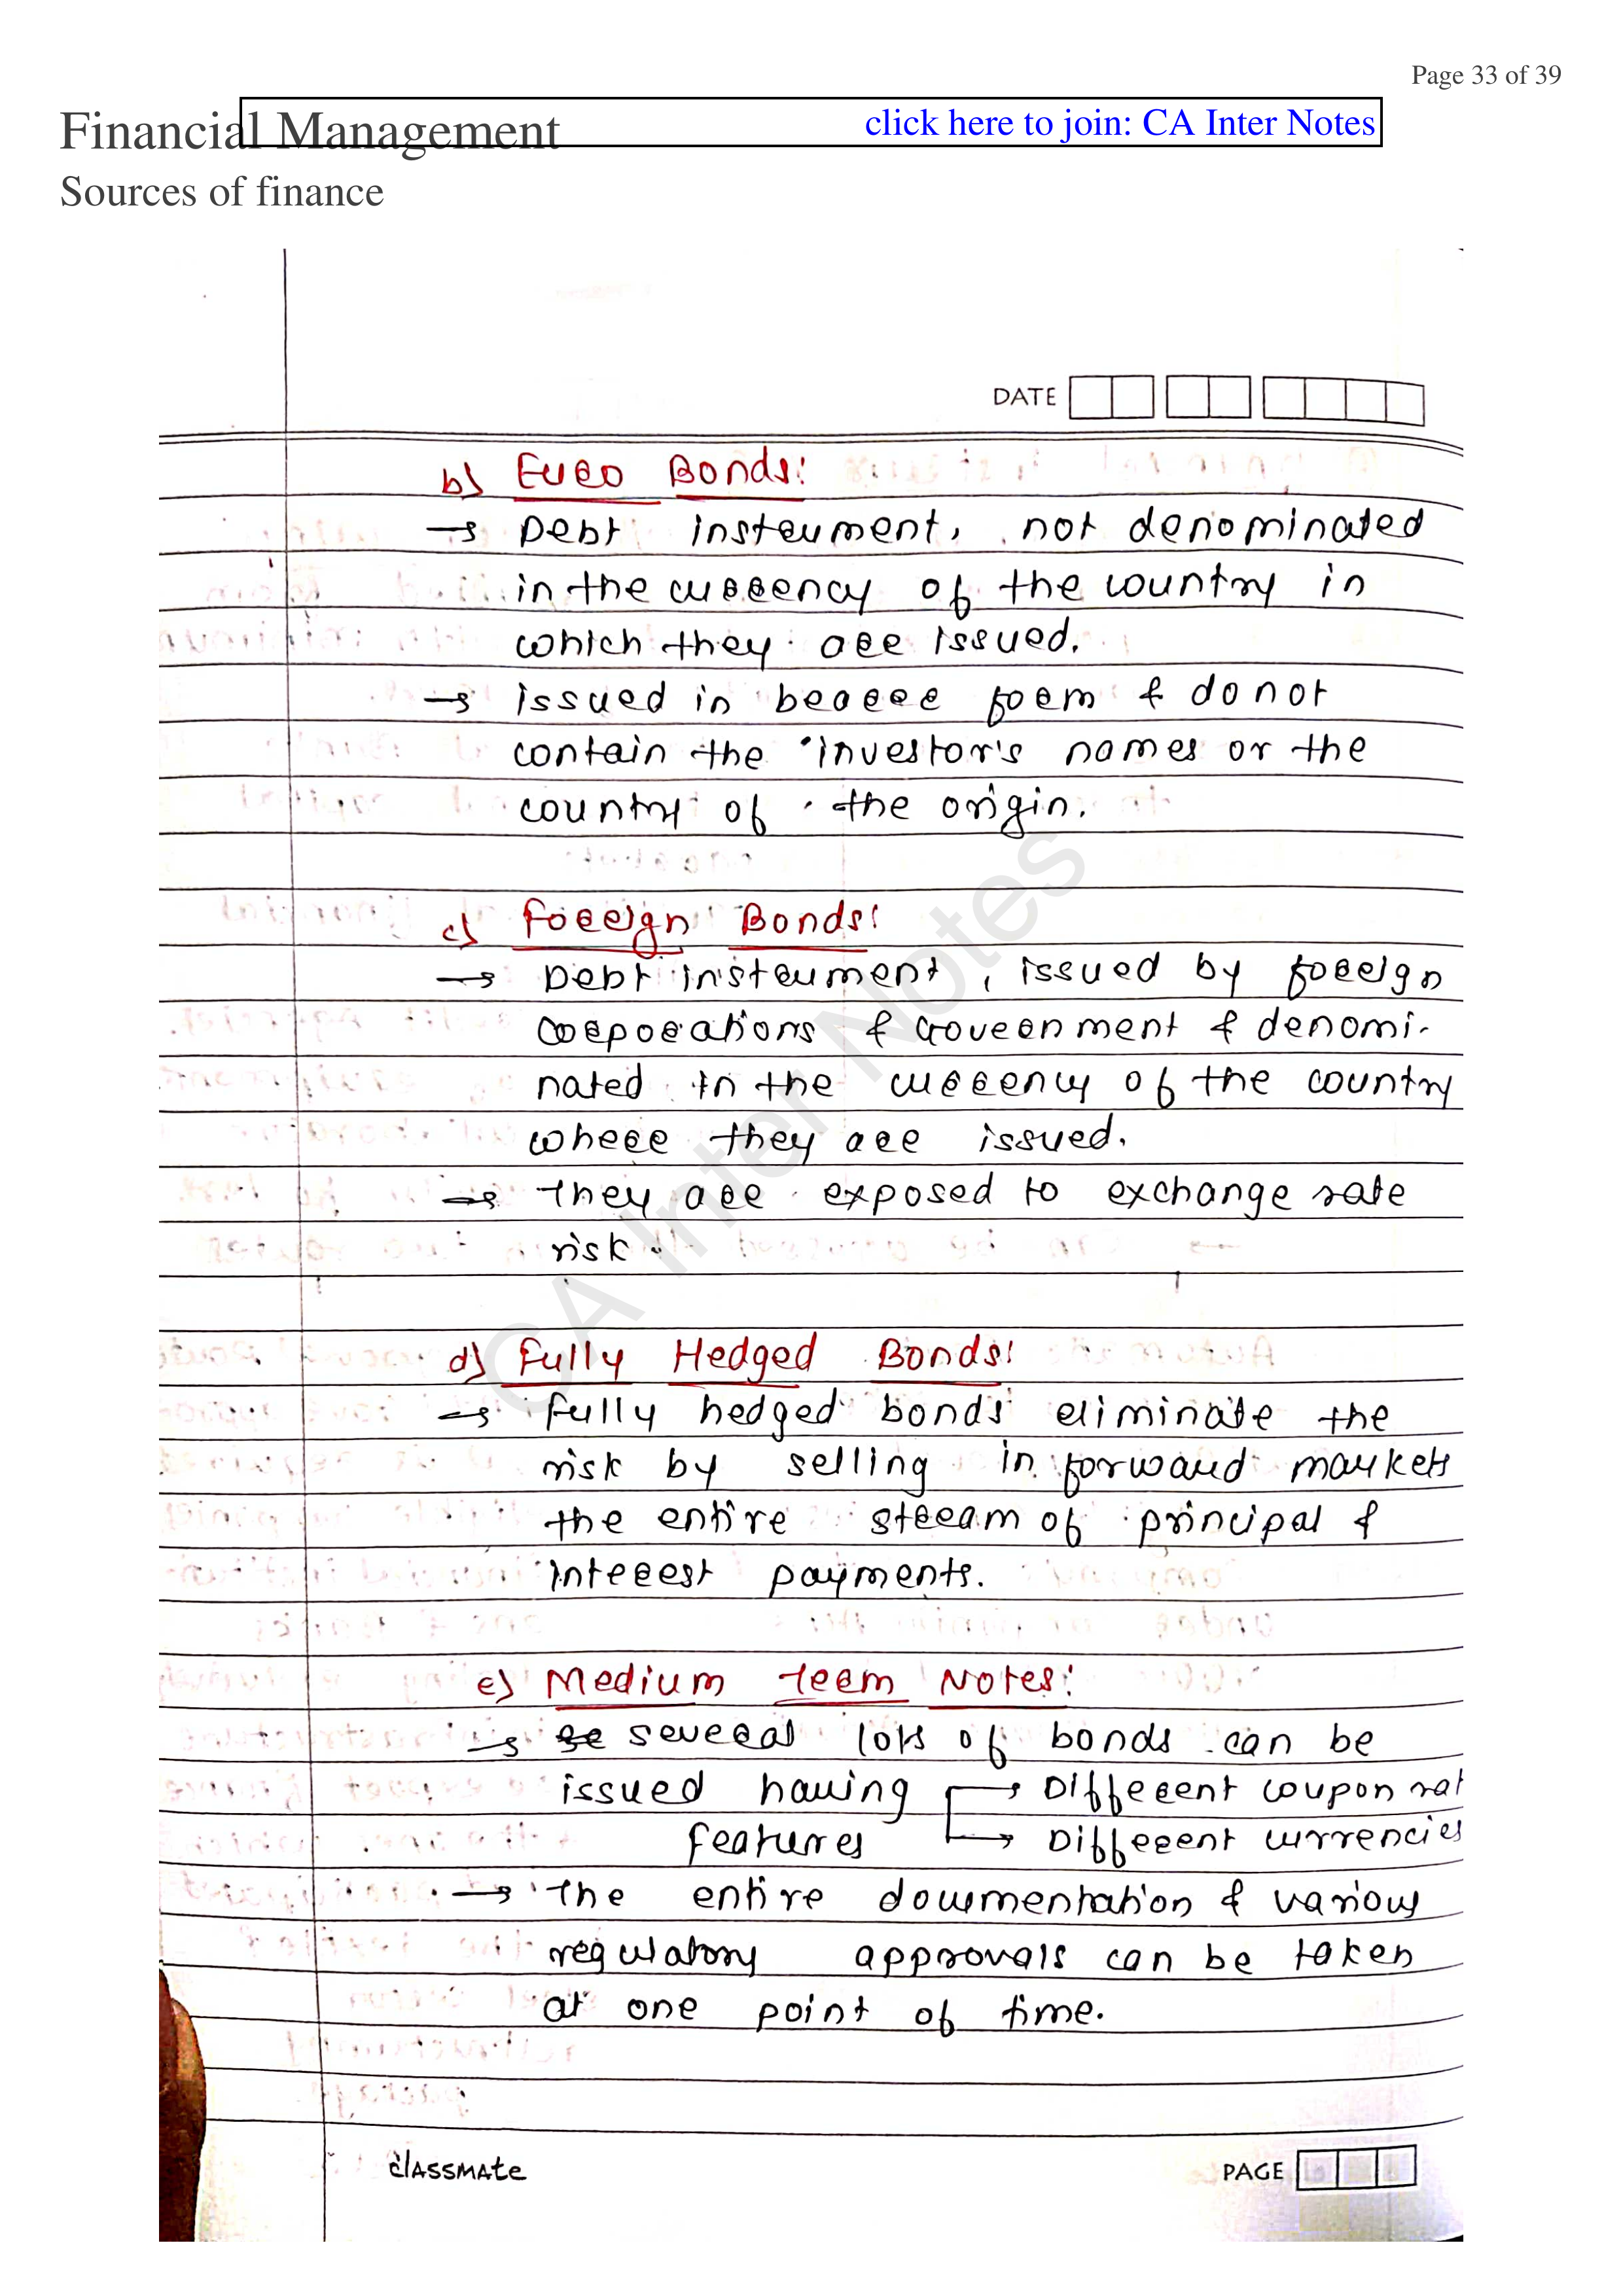 Page 33 of 39
Financial Management
click here to join: CA Inter Notes
Sources of finance
DATE
b) Euro Bonds:
→ Debt instrument, not denominated
in the currency of the country in
which they are issued.
→ issued in bearer form & do not
contain the investor's names or the
country of the origin.
c) Foreign Bonds:
→ Debt instrument, issued by foreign
corporations & Government & denomi-
nated in the currency of the country
where they are issued.
→ They are exposed to exchange rate
risk.
d) Fully Hedged Bonds:
→ fully hedged bonds eliminate the
risk by selling in forward markets
the entire stream of principal &
interest payments.
e) Medium Term Notes:
→ se several lots of bonds can be
issued having → Different coupon rat
features → Different currencies
→ The entire documentation & various
regulatory approvals can be taken
at one point of time.
classmate
PAGE
CA Inter Notes